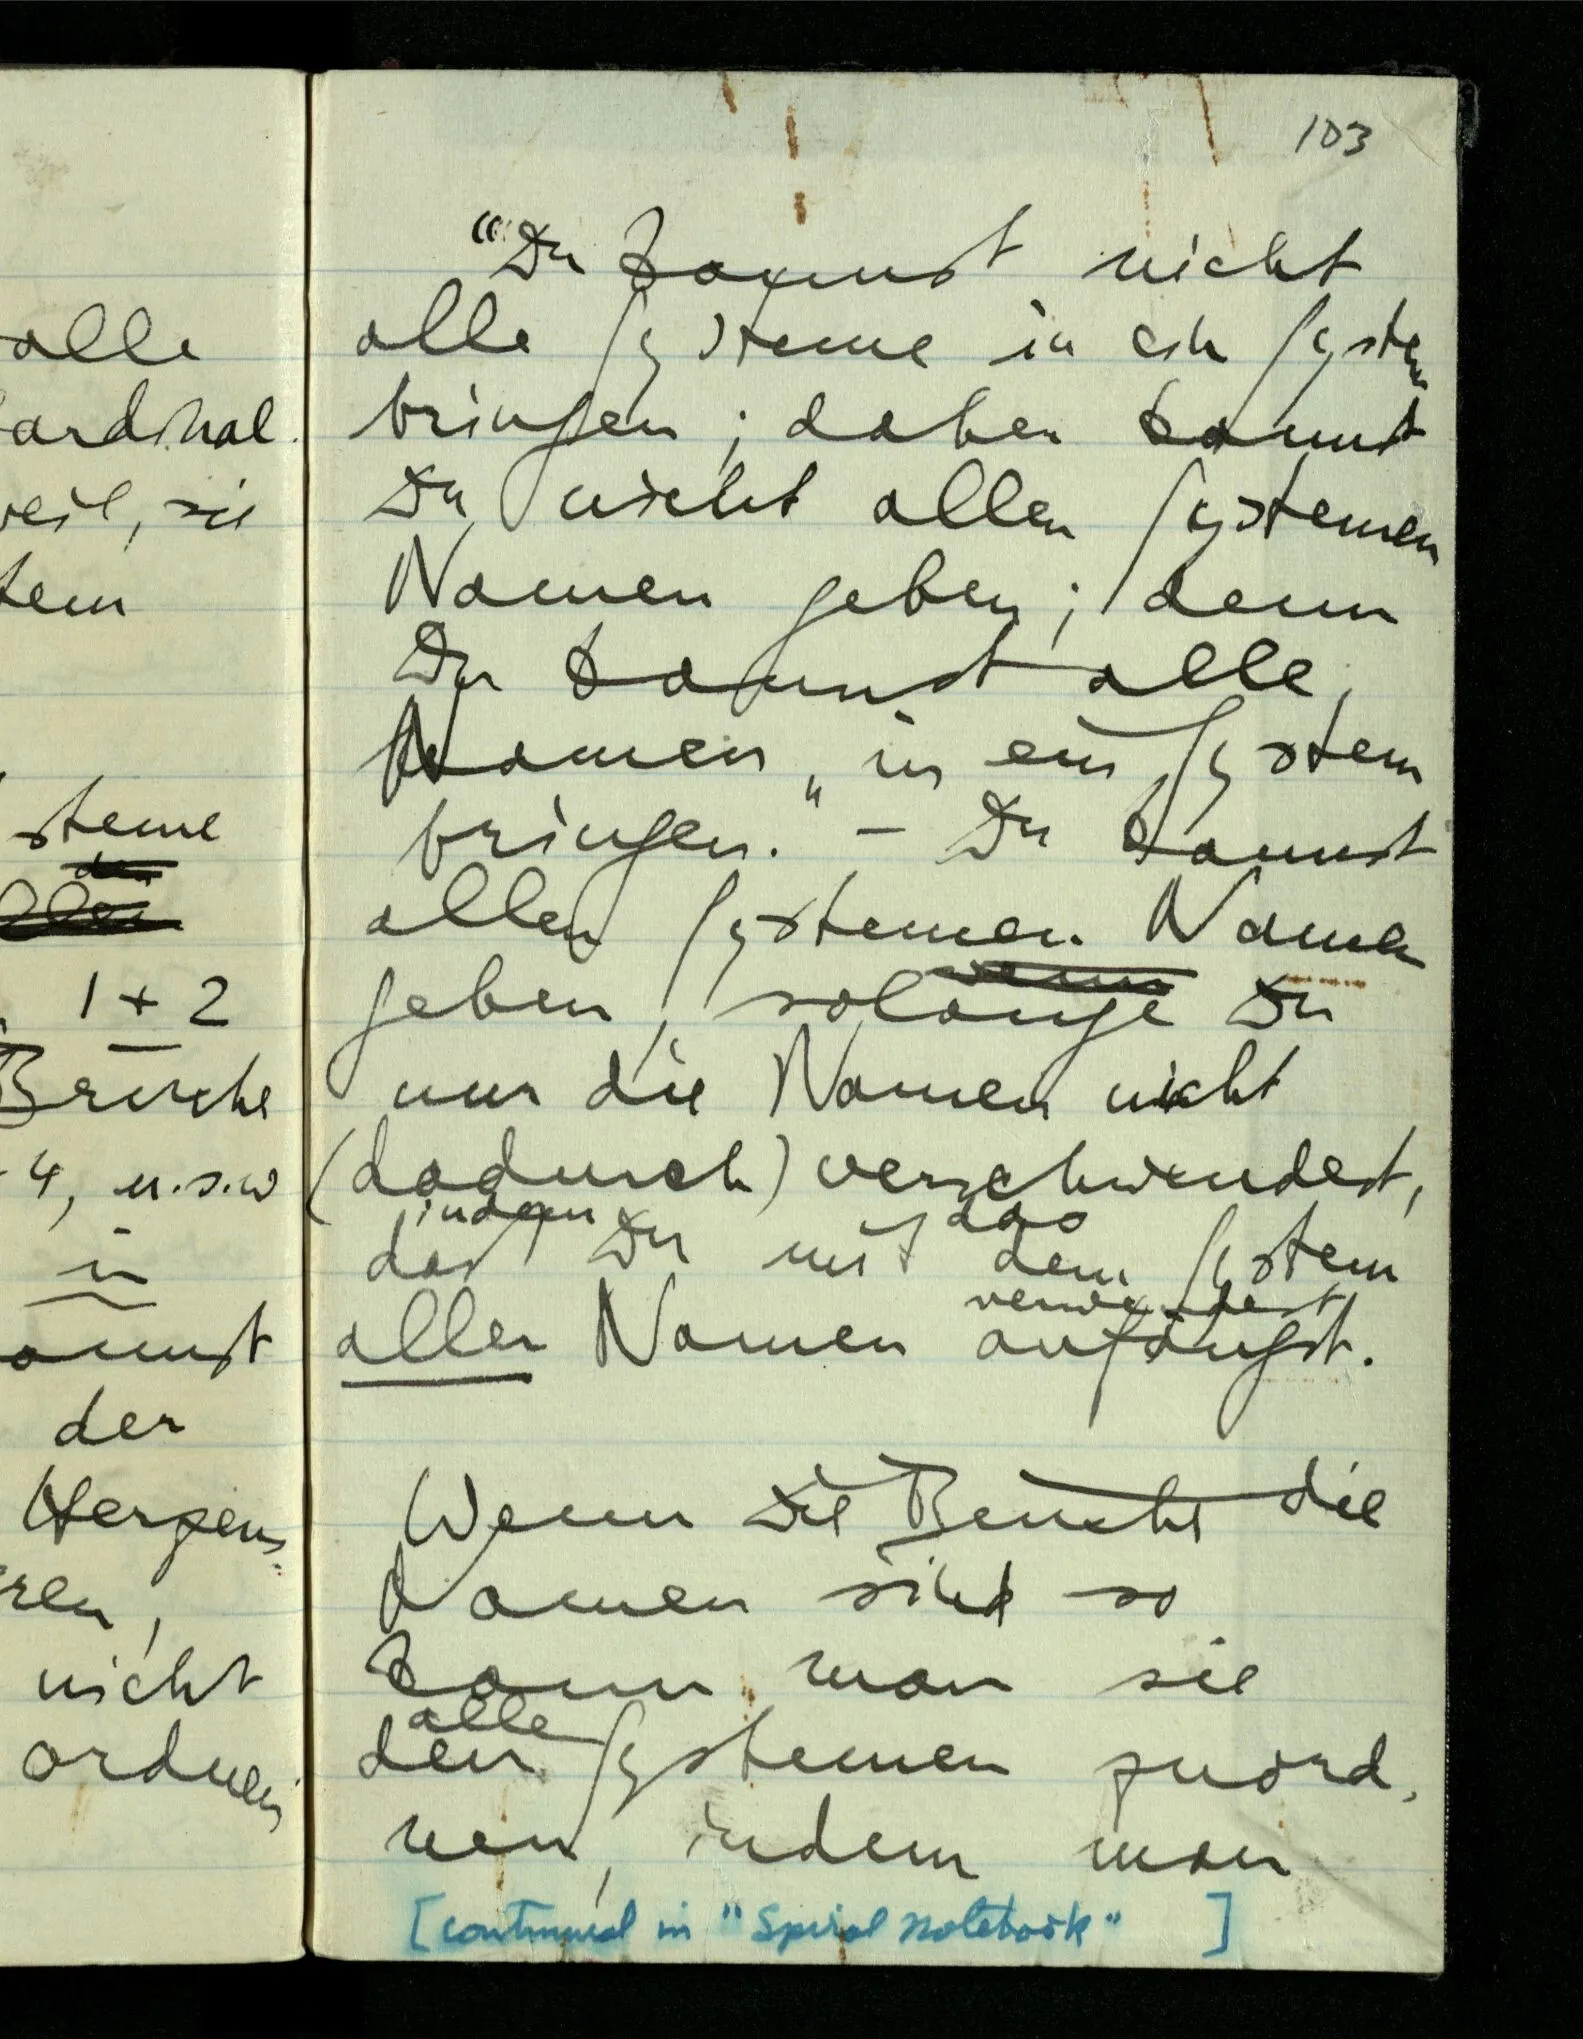 alle
ardinal
weil, sie
tem
steme
1 + 2
Brüche
4, u.s.w
in
annst
der
Herzens
ren,
nicht
ordnen
103
"Du kannst nicht
alle Systeme in ein System
bringen; daher kannst
Du nicht allen Systemen
Namen geben; denn
Du kannst alle
Namen „in ein System
bringen. – Du kannst
allen Systemen Namen
wenn
geben, solange Du
nur die Namen nicht
(dadurch) verschwendest,
indem das
daß Du mit dem System
verwendest
aller Namen anfängst.
Wenn die Brüche die
Namen sind so
kann man sie
alle
den Systemen zuord-
nen, indem man
[continued in "Spiral notebook" ]